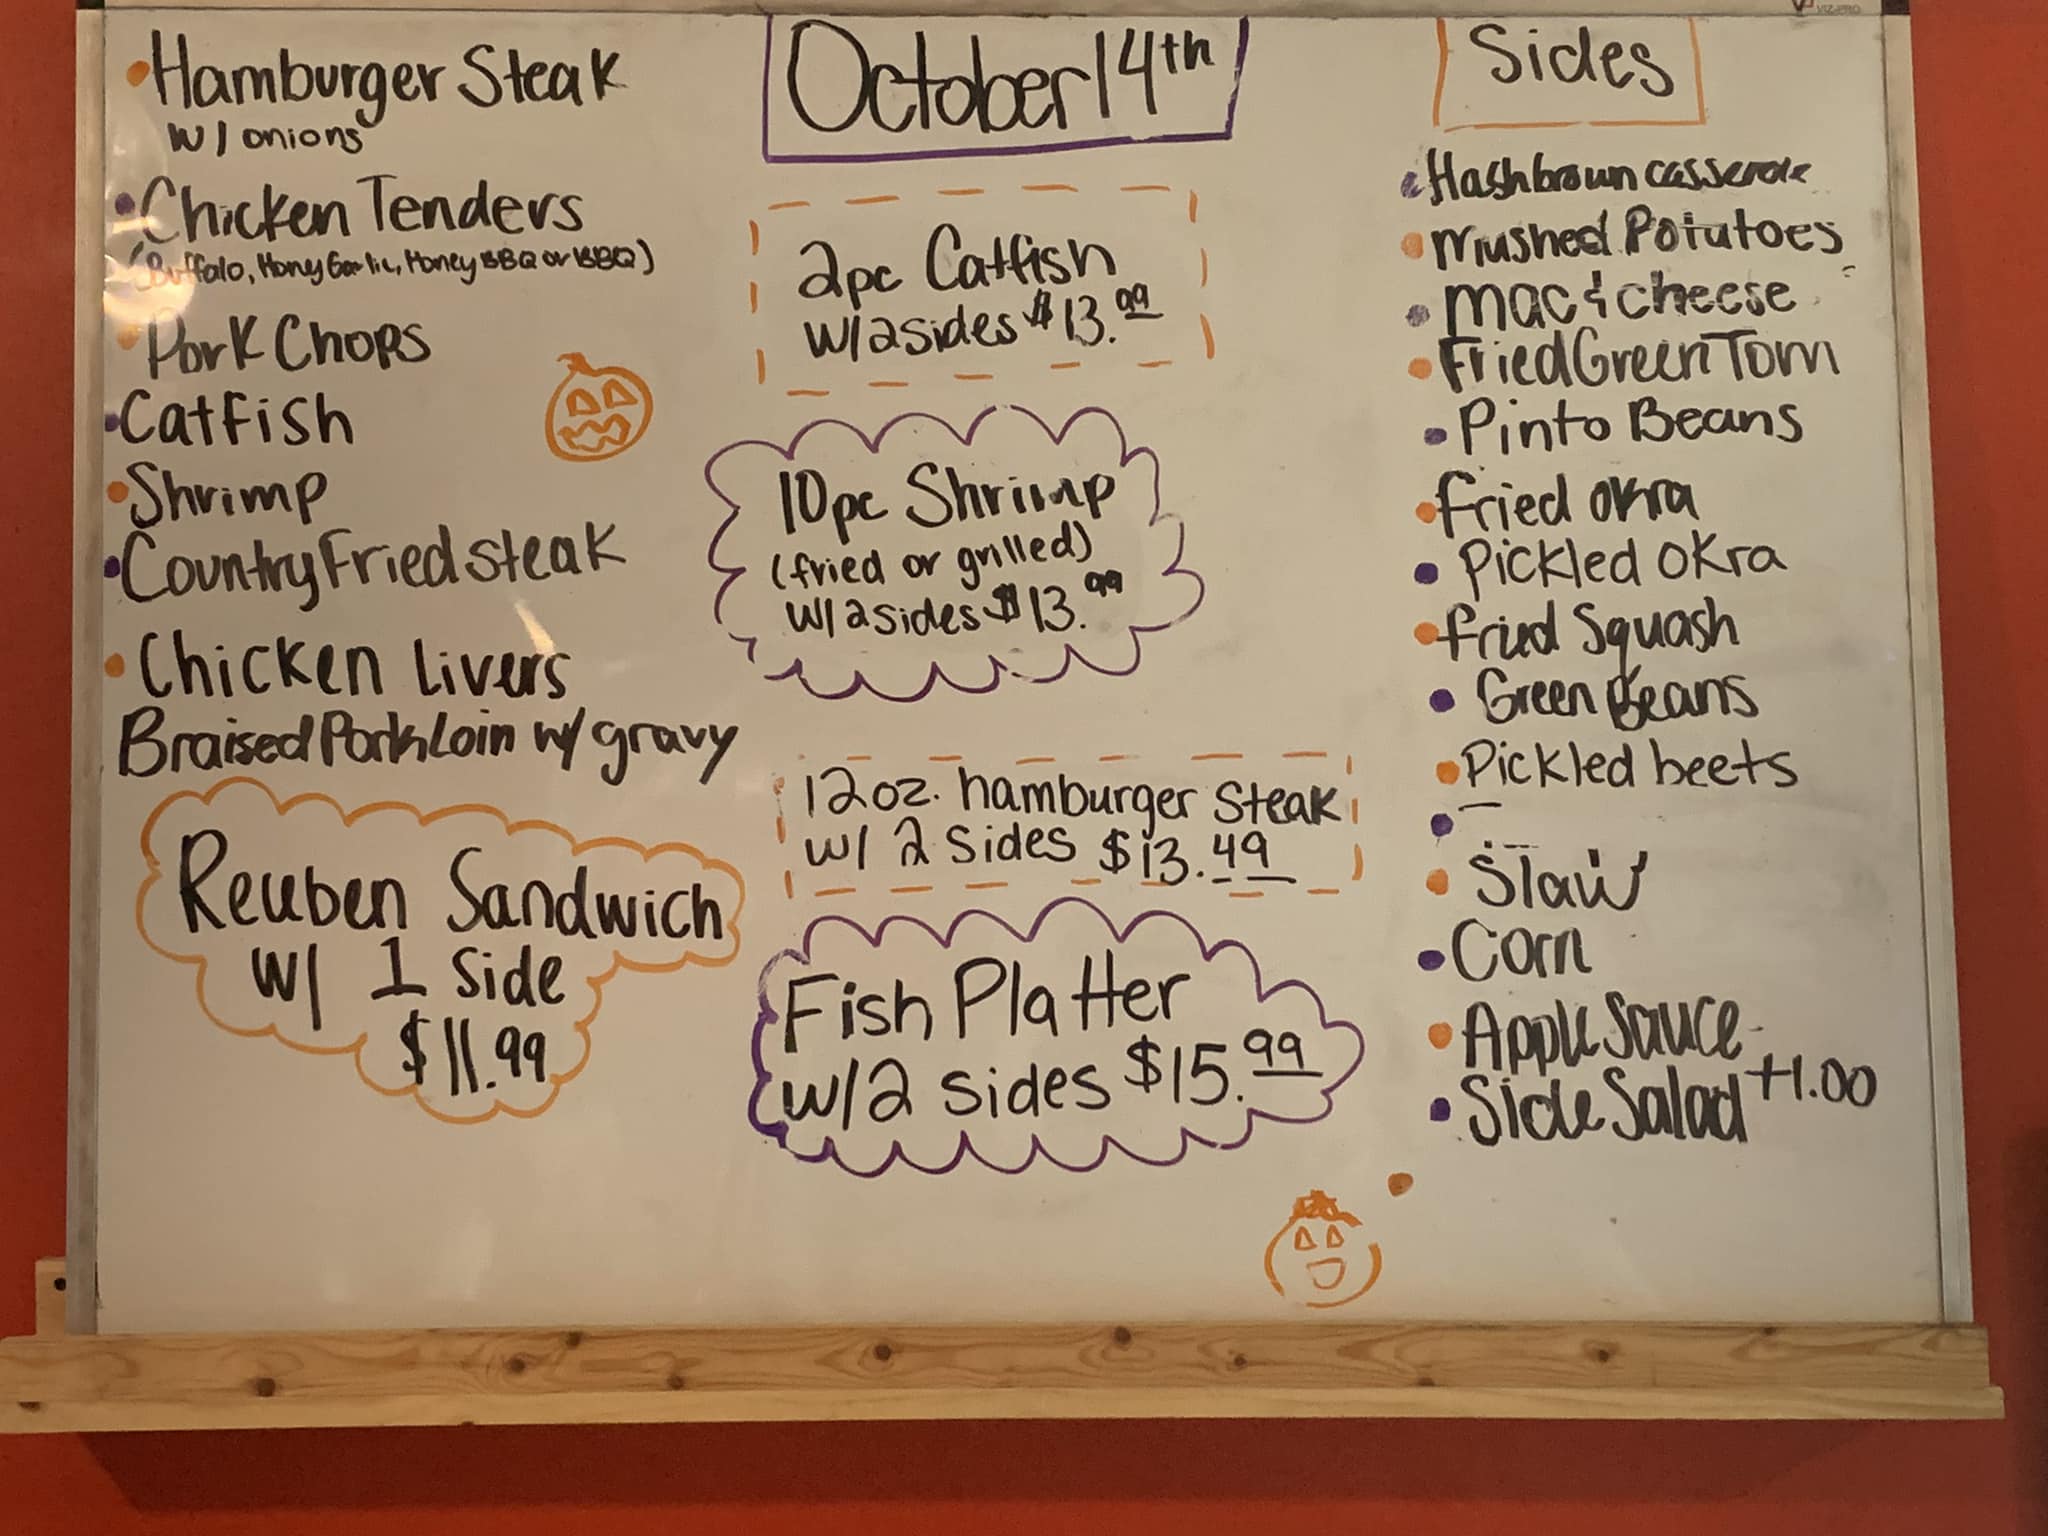 Hamburger Steak
w/ onions
Chicken Tenders
(Buffalo, Honey Garlic, Honey BBQ or BBQ)
Pork Chops
Catfish
Shrimp
Country Fried steak
Chicken Livers
Braised Pork Loin w/ gravy
Reuben Sandwich
w/ 1 side
$11.99
October 14th
2pc Catfish
w/2sides $13.99
10pc Shrimp
(fried or grilled)
w/2sides $13.99
12oz. hamburger Steak
w/ 2 sides $13.49
Fish Platter
w/2 sides $15.99
Sides
Hashbrown casserole
Mashed Potatoes
mac & cheese
Fried Green Tom
Pinto Beans
fried okra
Pickled okra
fried Squash
Green Beans
Pickled beets
Slaw
Corn
Apple Sauce
Side Salad +1.00
VIZ-PRO